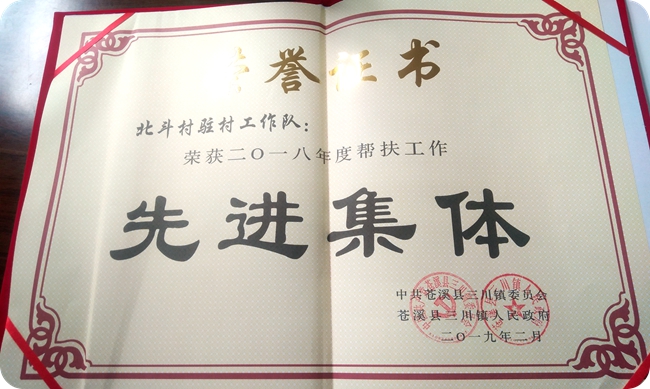 荣誉证书
北斗村驻村工作队:
荣获二〇一八年度帮扶工作
先进集体
中共苍溪县三川镇委员会
苍溪县三川镇人民政府
二〇一九年二月